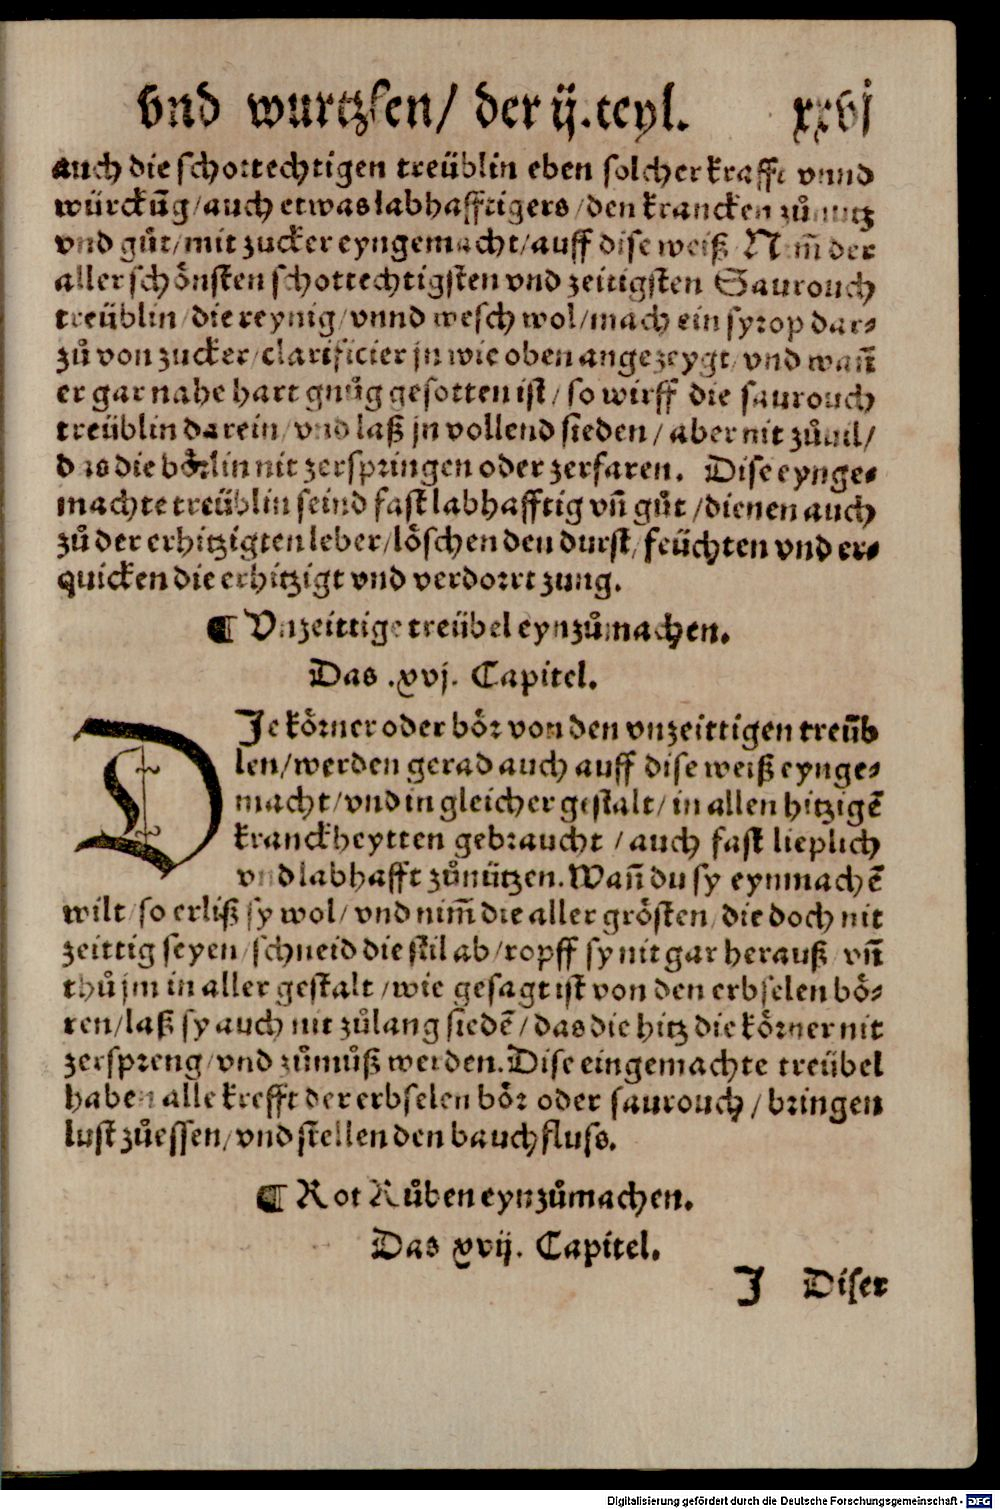 vnd wurtzlen/ der ij. teyl. xxvj
auch die schottechtigen treüblin eben solcher krafft vnnd
würckũg/auch etwas labhafftigers/den krancken zůnutz
vnd gůt/mit zucker eyngemacht/auff dise weiß Nim̃ der
aller schönsten schottechtigsten vnd zeitigsten Saurouch
treüblin/die reynig/vnnd wesch wol/mach ein syrop dar⸗
zů von zucker/clarificier jn wie oben angezeygt/vnd wañ
er gar nahe hart gnůg gesotten ist/so wirff die saurouch
treüblin darein/vnd laß jn vollend sieden/aber nit zůuil/
das die börlin nit zerspringen oder zerfaren. Dise eynge⸗
machte treüblin seind fast labhafftig vñ gůt/dienen auch
zů der erhitzigten leber/löschen den durst/feüchten vnd er⸗
quicken die erhitzigt vnd verdorrt zung.
¶ Vnzeittige treübel eynzůmachen.
Das .xvj. Capitel.
DJe körner oder bör von den vnzeittigen treüb
len/werden gerad auch auff dise weiß eynge⸗
macht/vnd in gleicher gestalt/in allen hitzigẽ
kranckheytten gebraucht/auch fast lieplich
vnd labhafft zůnützen. Wañ du sy eynmachẽ
wilt/so erliß sy wol/vnd nim̃ die aller grösten/die doch nit
zeittig seyen/schneid die stil ab/ropff sy nit gar herauß/vñ
thů jm in aller gestalt/wie gesagt ist von den erbselen bö⸗
ren/laß sy auch nit zůlang siedẽ/das die hitz die körner nit
zerspreng/vnd zůmůß werden. Dise eingemachte treübel
haben alle krefft der erbselen bör oder saurouch/bringen
lust zůessen/vnd stellen den bauchfluss.
¶ Rot Růben eynzůmachen.
Das xvij. Capitel.
J Diser
Digitalisierung gefördert durch die Deutsche Forschungsgemeinschaft - DFG